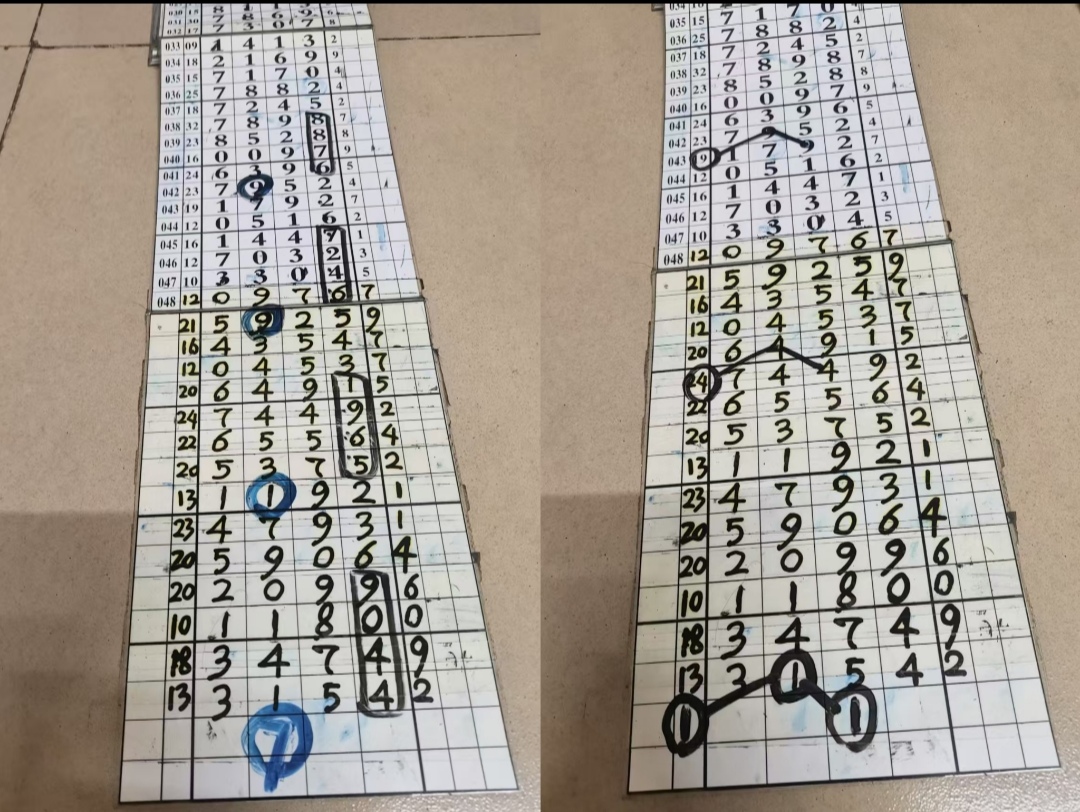 033 09 1 4 1 3 2
034 18 2 1 6 9 9
035 15 7 1 7 0 4
036 25 7 8 8 2 4
037 18 7 2 4 5 2
038 32 7 8 9 8 7
039 23 8 5 2 8 8
040 16 0 0 9 7 9
041 24 6 3 9 6 5
042 23 7 9 5 2 4
043 19 1 7 9 2 7
044 12 0 5 1 6 2
045 16 1 4 4 7 1
046 12 7 0 3 2 3
047 10 3 3 0 4 5
048 12 0 9 7 6 7
21 5 9 2 5 9
16 4 3 5 4 7
12 0 4 5 3 7
20 6 4 9 1 5
24 7 4 4 9 2
22 6 5 5 6 4
20 5 3 7 5 2
13 1 1 9 2 1
23 4 7 9 3 1
20 5 9 0 6 4
20 2 0 9 9 6
10 1 1 8 0 0
18 3 4 7 4 9
13 3 1 5 4 2
7
035 15 7 1 7 0 4
036 25 7 8 8 2 4
037 18 7 2 4 5 2
038 32 7 8 9 8 7
039 23 8 5 2 8 8
040 16 0 0 9 7 9
041 24 6 3 9 6 5
042 23 7 9 5 2 4
043 19 1 7 9 2 7
044 12 0 5 1 6 2
045 16 1 4 4 7 1
046 12 7 0 3 2 3
047 10 3 3 0 4 5
048 12 0 9 7 6 7
21 5 9 2 5 9
16 4 3 5 4 7
12 0 4 5 3 7
20 6 4 9 1 5
24 7 4 4 9 2
22 6 5 5 6 4
20 5 3 7 5 2
13 1 1 9 2 1
23 4 7 9 3 1
20 5 9 0 6 4
20 2 0 9 9 6
10 1 1 8 0 0
18 3 4 7 4 9
13 3 1 5 4 2
1 1